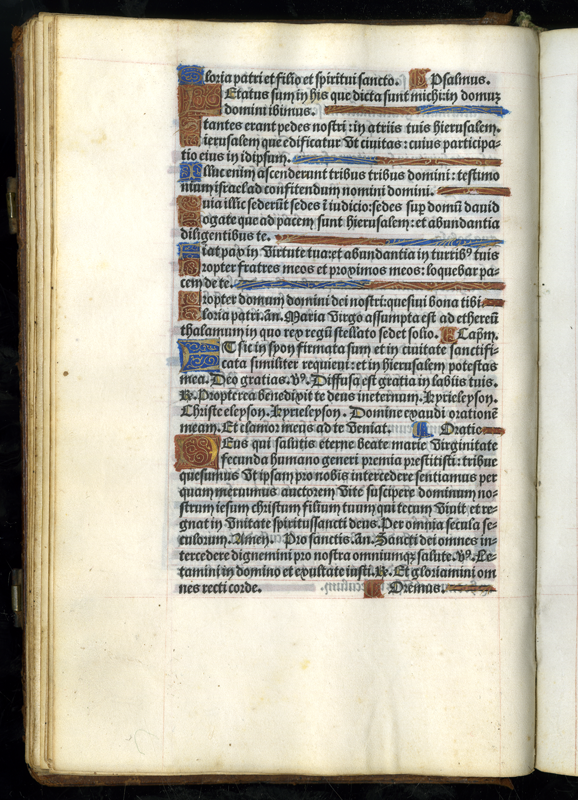 Gloria patri et filio et spiritui sancto. Psalmus.
LEtatus sum in his que dicta sunt michi: in domuz
domini ibimus.
Stantes erant pedes nostri: in atriis tuis hierusalem.
Hierusalem que edificatur vt ciuitas: cuius participa-
tio eius in idipsum.
Illuc enim ascenderunt tribus tribus domini: testimo
nium israel ad confitendum nomini domini.
Quia illic sederūt sedes ī iudicio: sedes sup domū dauid
Rogate que ad pacem sunt hierusalem: et abundantia
diligentibus te.
Fiat pax in virtute tua: et abundantia in turribꝰ tuis
Propter fratres meos et proximos meos: loquebar pa-
cem de te.
Propter domum domini dei nostri: quesiui bona tibi.
Gloria patri. añ. Maria virgo assumpta est ad ethereū
thalamum in quo rex regū stellato sedet solio. Capm̄.
ET sic in syon firmata sum et in ciuitate sanctifi-
cata similiter requieui: et in hierusalem potestas
mea. Deo gratias. ℣. Diffusa est gratia in labiis tuis.
℟. Propterea benedixit te deus ineternum. Kyrieleyson.
Christe eleyson. Kyrieleyson. Domine exaudi orationē
meam. Et clamor meus ad te veniat. Oratio
DEus qui salutis eterne beate marie virginitate
fecunda humano generi premia prestitisti: tribue
quesumus vt ipsam pro nobis intercedere sentiamus per
quam meruimus auctorem vite suscipere dominum no-
strum iesum christum filium tuum qui tecum viuit et re-
gnat in vnitate spiritussancti deus. Per omnia secula se-
culorum. Amen. Pro sanctis. añ. Sancti dei omnes in-
tercedere dignemini pro nostra omniumqȝ salute. ℣. Le-
tamini in domino et exultate iusti. ℟. Et gloriamini om
nes recti corde. Oremus.